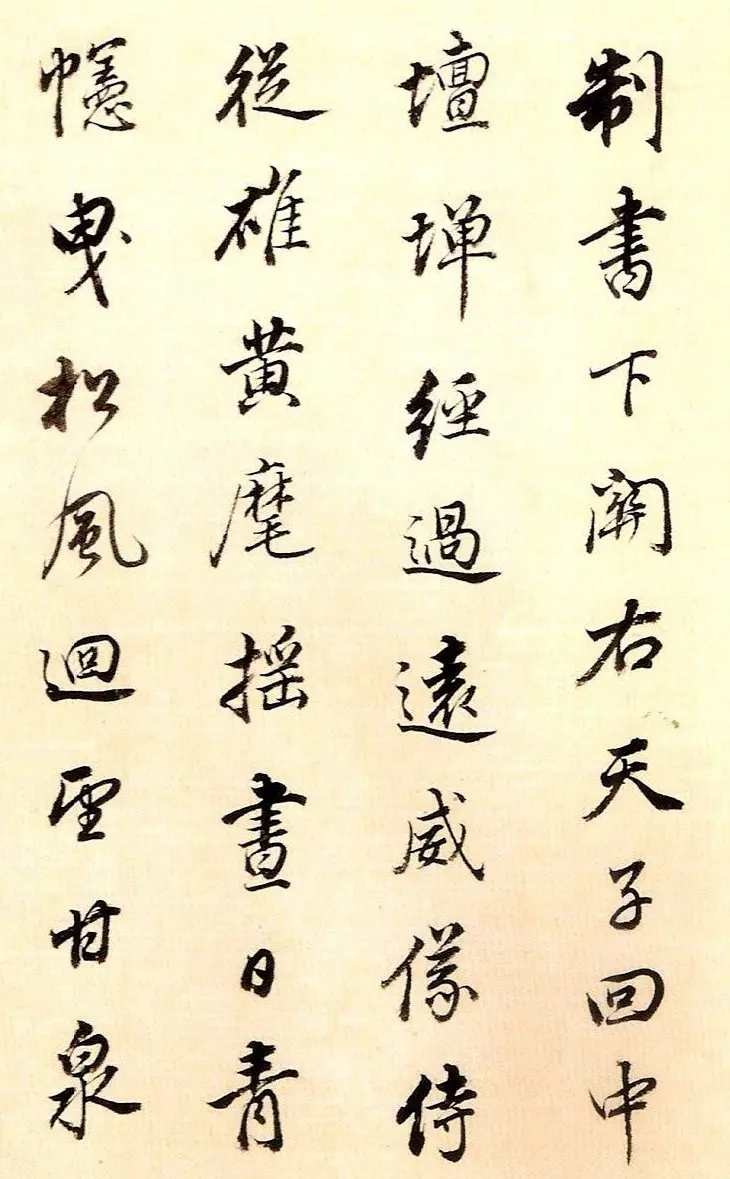 制書下關右天子回中
壇墠經過遠威儀侍
從雄黃麾搖晝日青
幰曳松風迴望甘泉